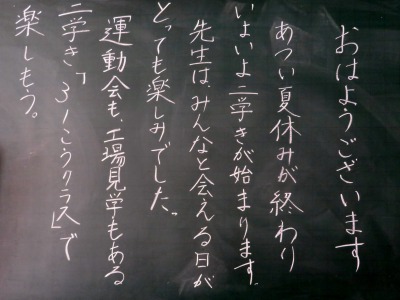 おはようございます
あつい夏休みが終わり
いよいよ二学きが始まります。
先生は、みんなと会える日が
とっても楽しみでした。
運動会も、工場見学もある
二学き、「3１こうクラス」で
楽しもう。